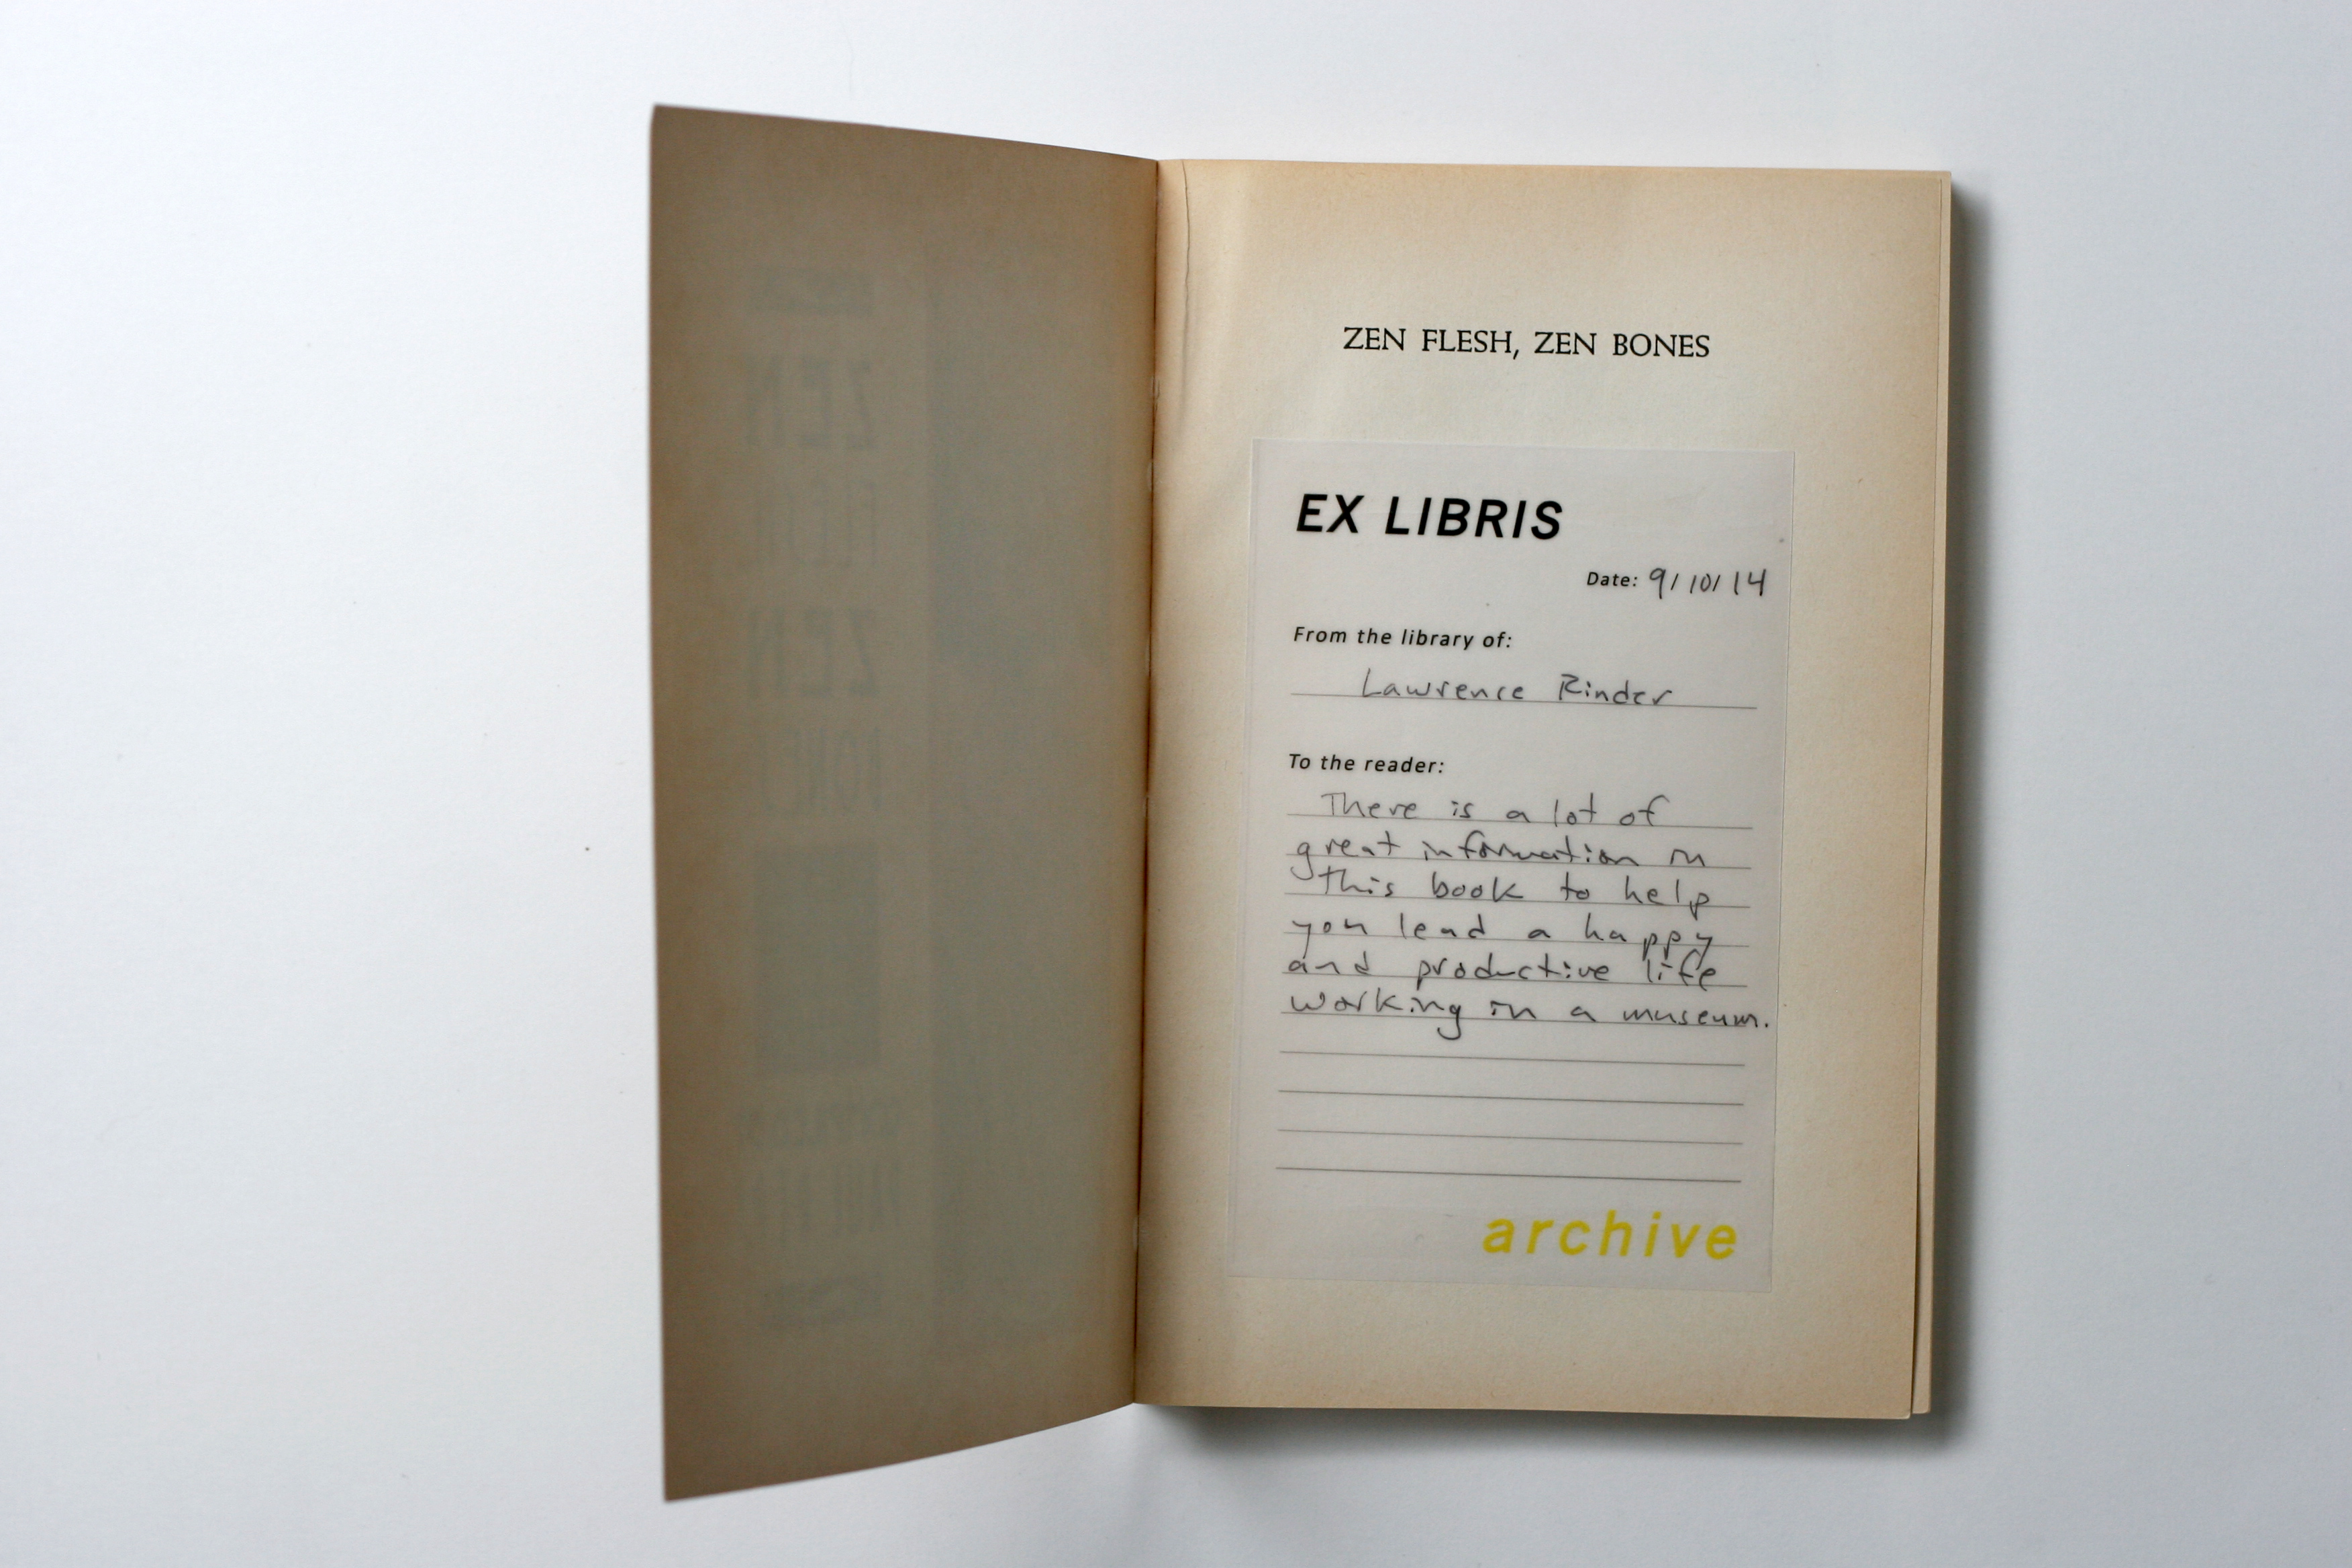 ZEN FLESH, ZEN BONES
EX LIBRIS
Date: 9/10/14
From the library of:
Lawrence Rinder
To the reader:
There is a lot of
great information in
this book to help
you lead a happy
and productive life
working in a museum.
archive